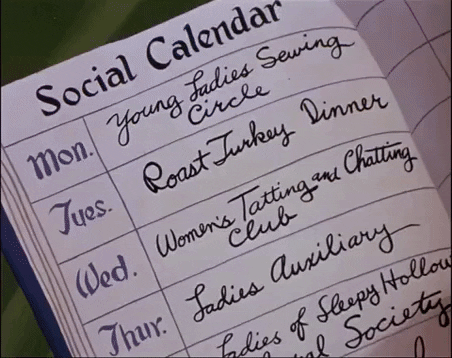 Social Calendar
Mon. Young Ladies Sewing
Circle
Tues. Roast Turkey Dinner
Wed. Women's Tatting and Chatting
Club
Thur. Ladies Auxiliary
Ladies of Sleepy Hollow
Society